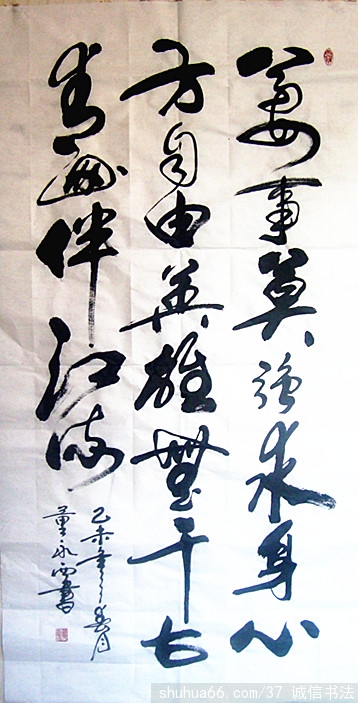 萬事莫強求身心
方自由英雄無千古
青伴江流
乙未年春月
董永西書
shuhua66.com/37 诚信书法